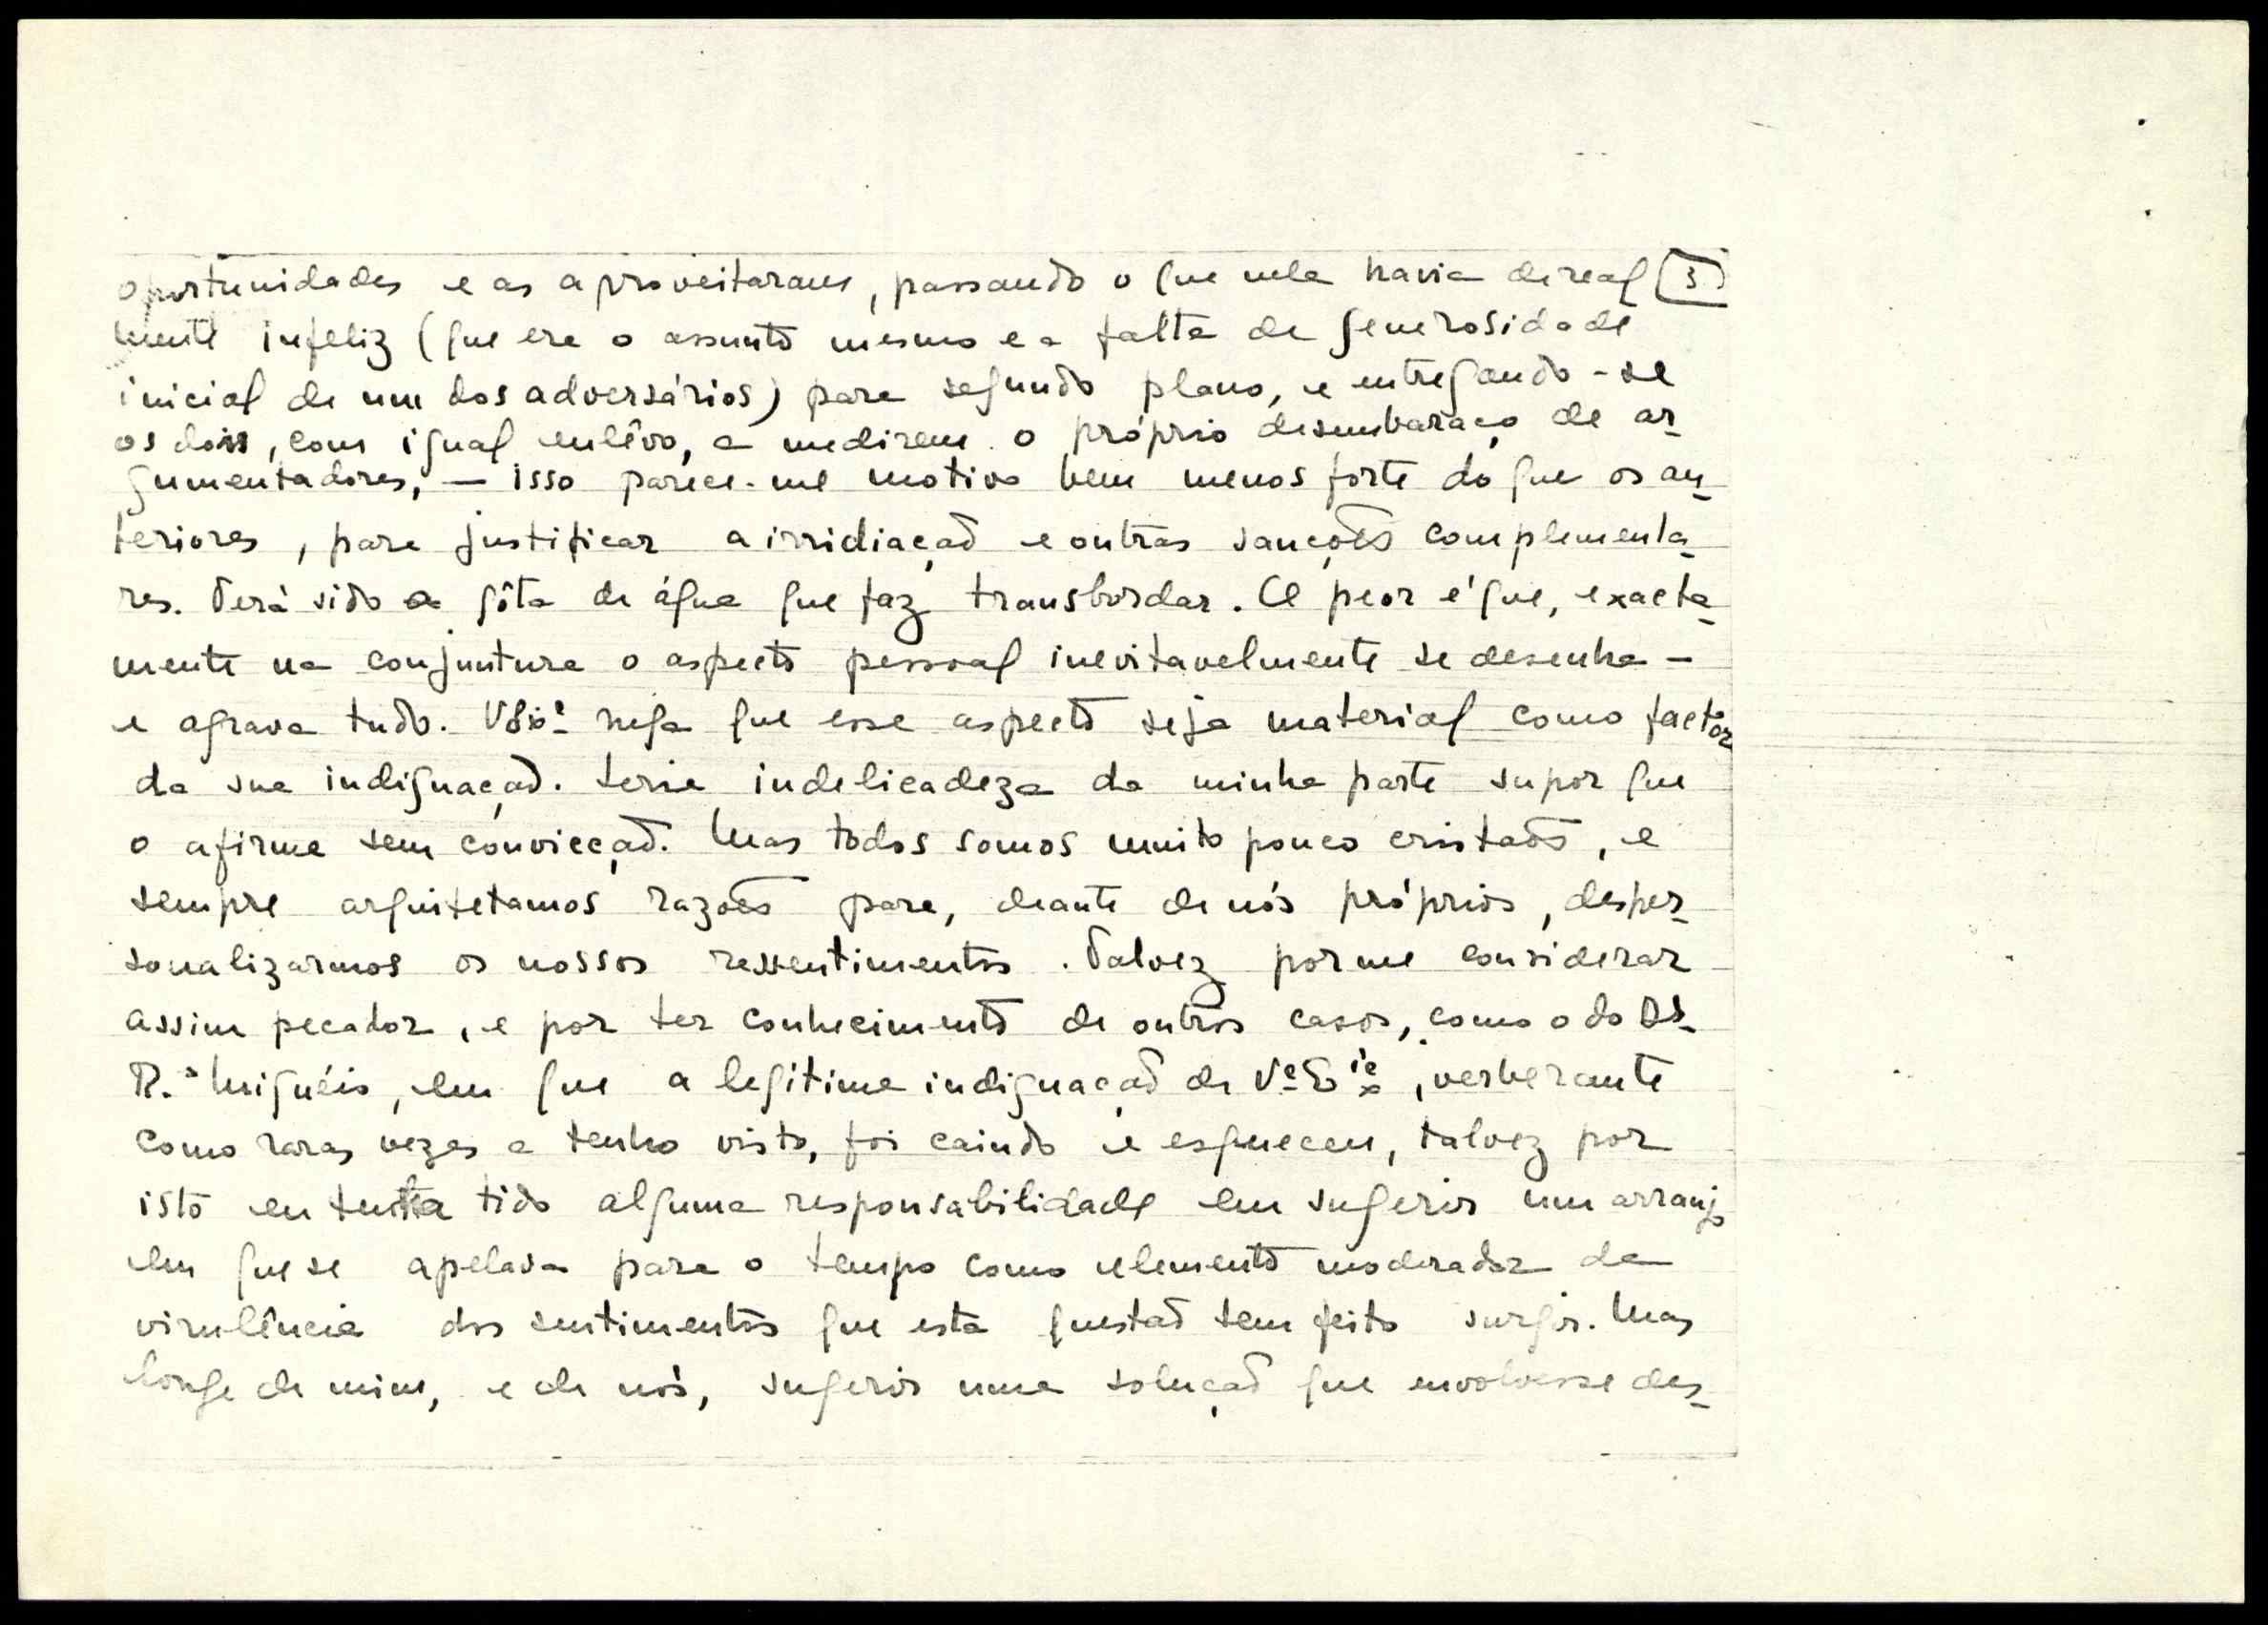 oportunidades e as aproveitaram, passando o que nela havia de real 3
mente infeliz (que era o assunto mesmo e a falta de generosidade
inicial de um dos adversários) para segundo plano, e entregando-se
os dois, com igual enlêvo, a medirem o próprio desembaraço de ar-
gumentadores, — isso parece-me motivo bem menos forte do que os an-
teriores, para justificar a irridiação e outras sanções complementa-
res. Terá sido a gôta de água que faz transbordar. O peor é que, exacta-
mente na conjuntura o aspecto pessoal inevitavelmente se desenha —
e agrava tudo. VExª nega que esse aspecto seja material como factor
da sua indignação. Seria indelicadeza da minha parte supor que
o afirme sem convicção. Mas todos somos muito pouco cristãos, e
sempre arquitetamos razões para, deante de nós próprios, desper-
sonalizarmos os nossos ressentimentos. Talvez por me considerar
assim pecador, e por ter conhecimento de outros casos, como o do Dr.
R. Miguéis, em que a legítima indignação de Vª Exiª, verberante
como raras vezes a tenho visto, foi caindo e esqueceu, talvez por
isto eu tenha tido alguma responsabilidade em sugerir um arranjo
em que se apelava para o tempo como elemento moderador da
virulência dos sentimentos que esta questão tem feito surgir. Mas
longe de mim, e de nós, sugerir uma solução que envolvesse des-